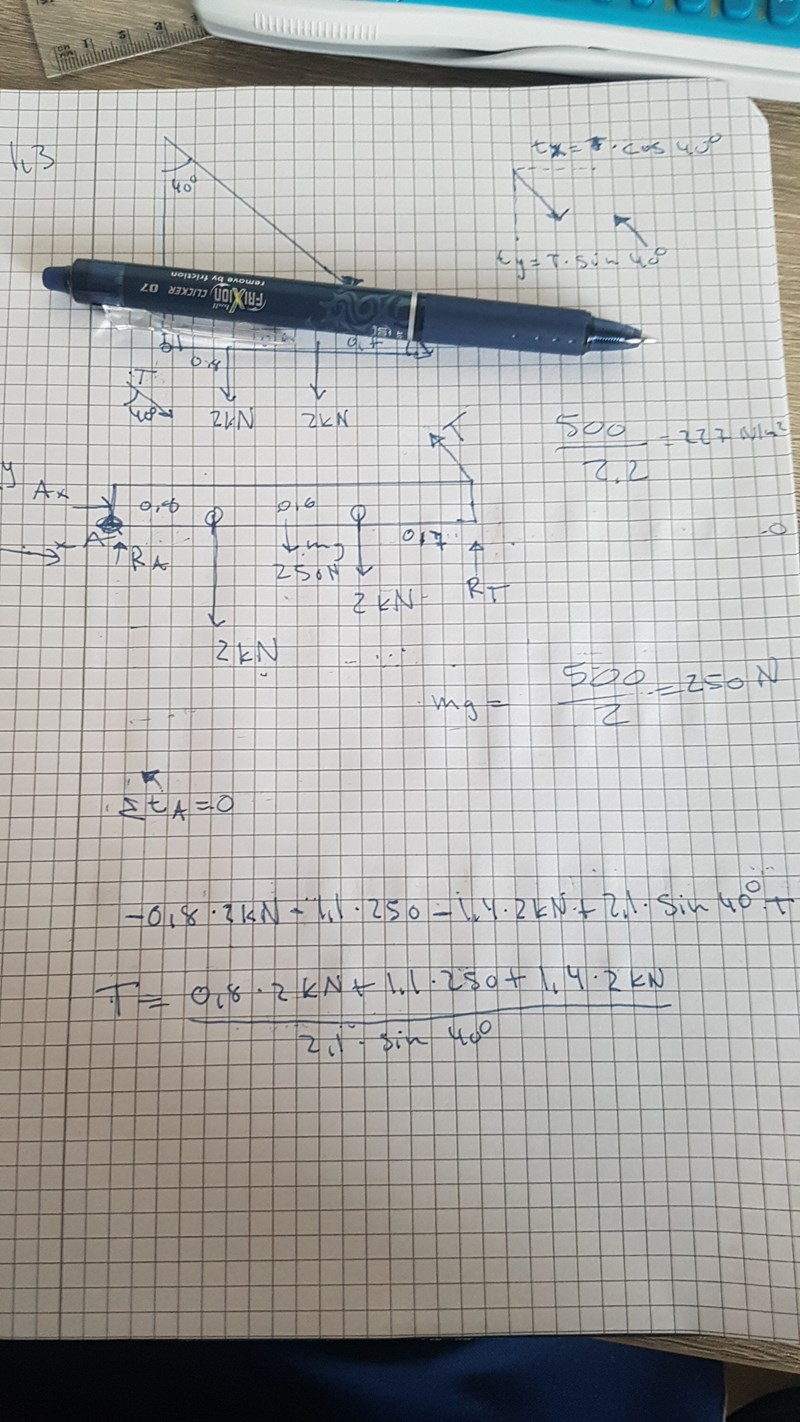 1,3
40°
tx = T · cos 40°
ty = T · sin 40°
FRIXION CLICKER 07
remove by friction
0.8
T
2kN
2kN
500
2.2
= 227 N/m²
T
y
Ax
0,8
0,6
0,7
x
A
RA
mg
250N
2 kN
RT
2 kN
mg = 500
2
= 250 N
ΣtA = 0
-0,8 · 2kN - 1,1 · 250 - 1,4 · 2kN + 2,1 · sin 40° · T
T = 0,8 · 2 kN + 1,1 · 250 + 1,4 · 2 kN
2,1 · sin 40°